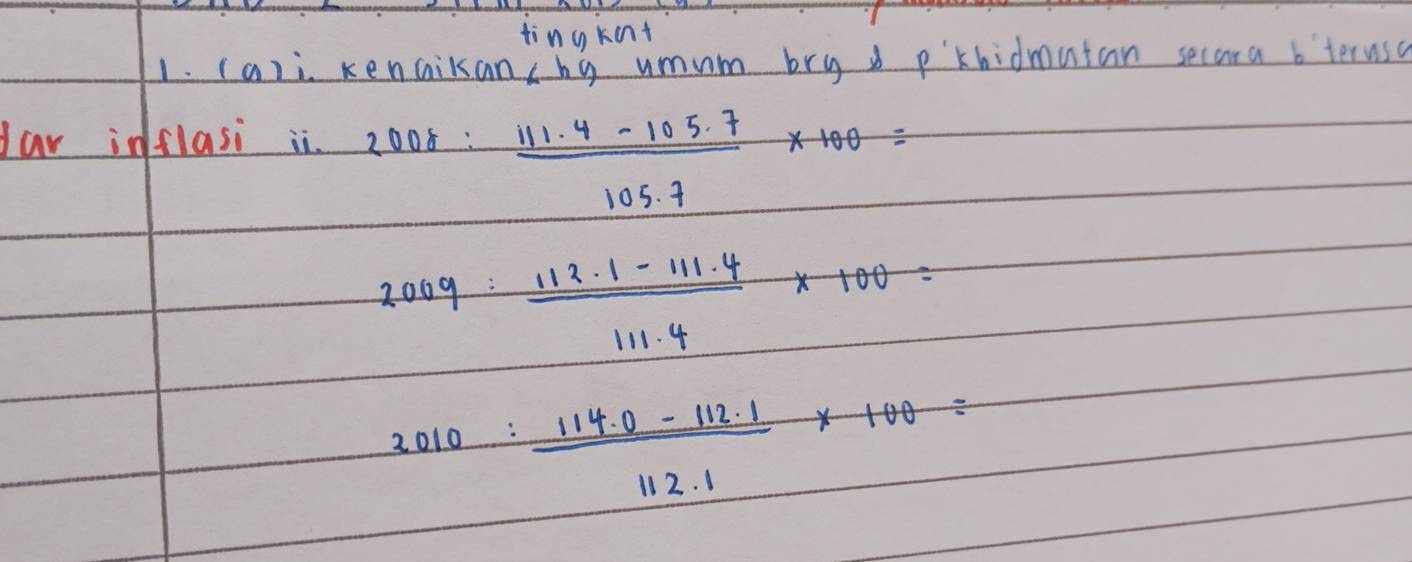 tingkat
1. (a) i. kenaikan hg umum brg & p'khidmatan secara b'terusa
dar inflasi ii. 2008 : 111.4 - 105.7 x 100 =
105.7
2009 : 112.1 - 111.4 x 100 =
111.4
2010 : 114.0 - 112.1 x 100 =
112.1